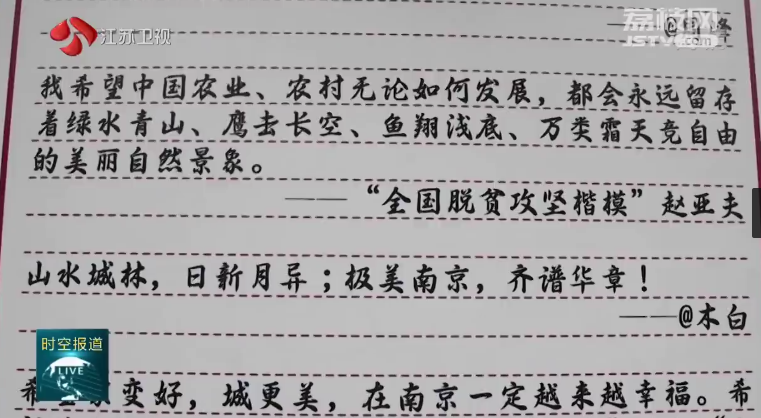 江苏卫视
荔枝网
JSTV.COM
我希望中国农业、农村无论如何发展，都会永远留存
着绿水青山、鹰击长空、鱼翔浅底、万类霜天竞自由
的美丽自然景象。
——“全国脱贫攻坚楷模”赵亚夫
山水城林，日新月异；极美南京，齐谱华章！
——@木白
时空报道
LIVE
变好，城更美，在南京一定越来越幸福。希